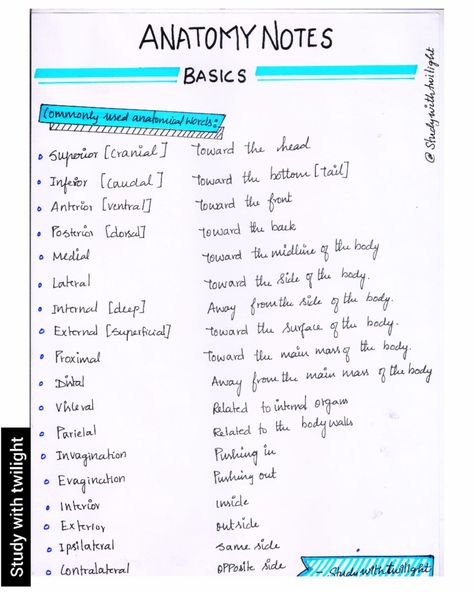 ANATOMY NOTES
BASICS
@Studywithtwilight
Commonly used anatomical words:
Superior [Cranial] Toward the head
Inferior [Caudal] Toward the bottom [tail]
Anterior [ventral] Toward the front
Posterior [dorsal] Toward the back
Medial Toward the midline of the body
Lateral Toward the side of the body.
Internal [deep] Away from the side of the body.
External [Superficial] Toward the surface of the body.
Proximal Toward the main mass of the body.
Distal Away from the main mass of the body
Visceral Related to internal organs
Parietal Related to the body walls
Invagination Pushing in
Evagination Pushing out
Interior inside
Exterior outside
Ipsilateral same side
Contralateral opposite side
Studywithtwilight
Study with twilight